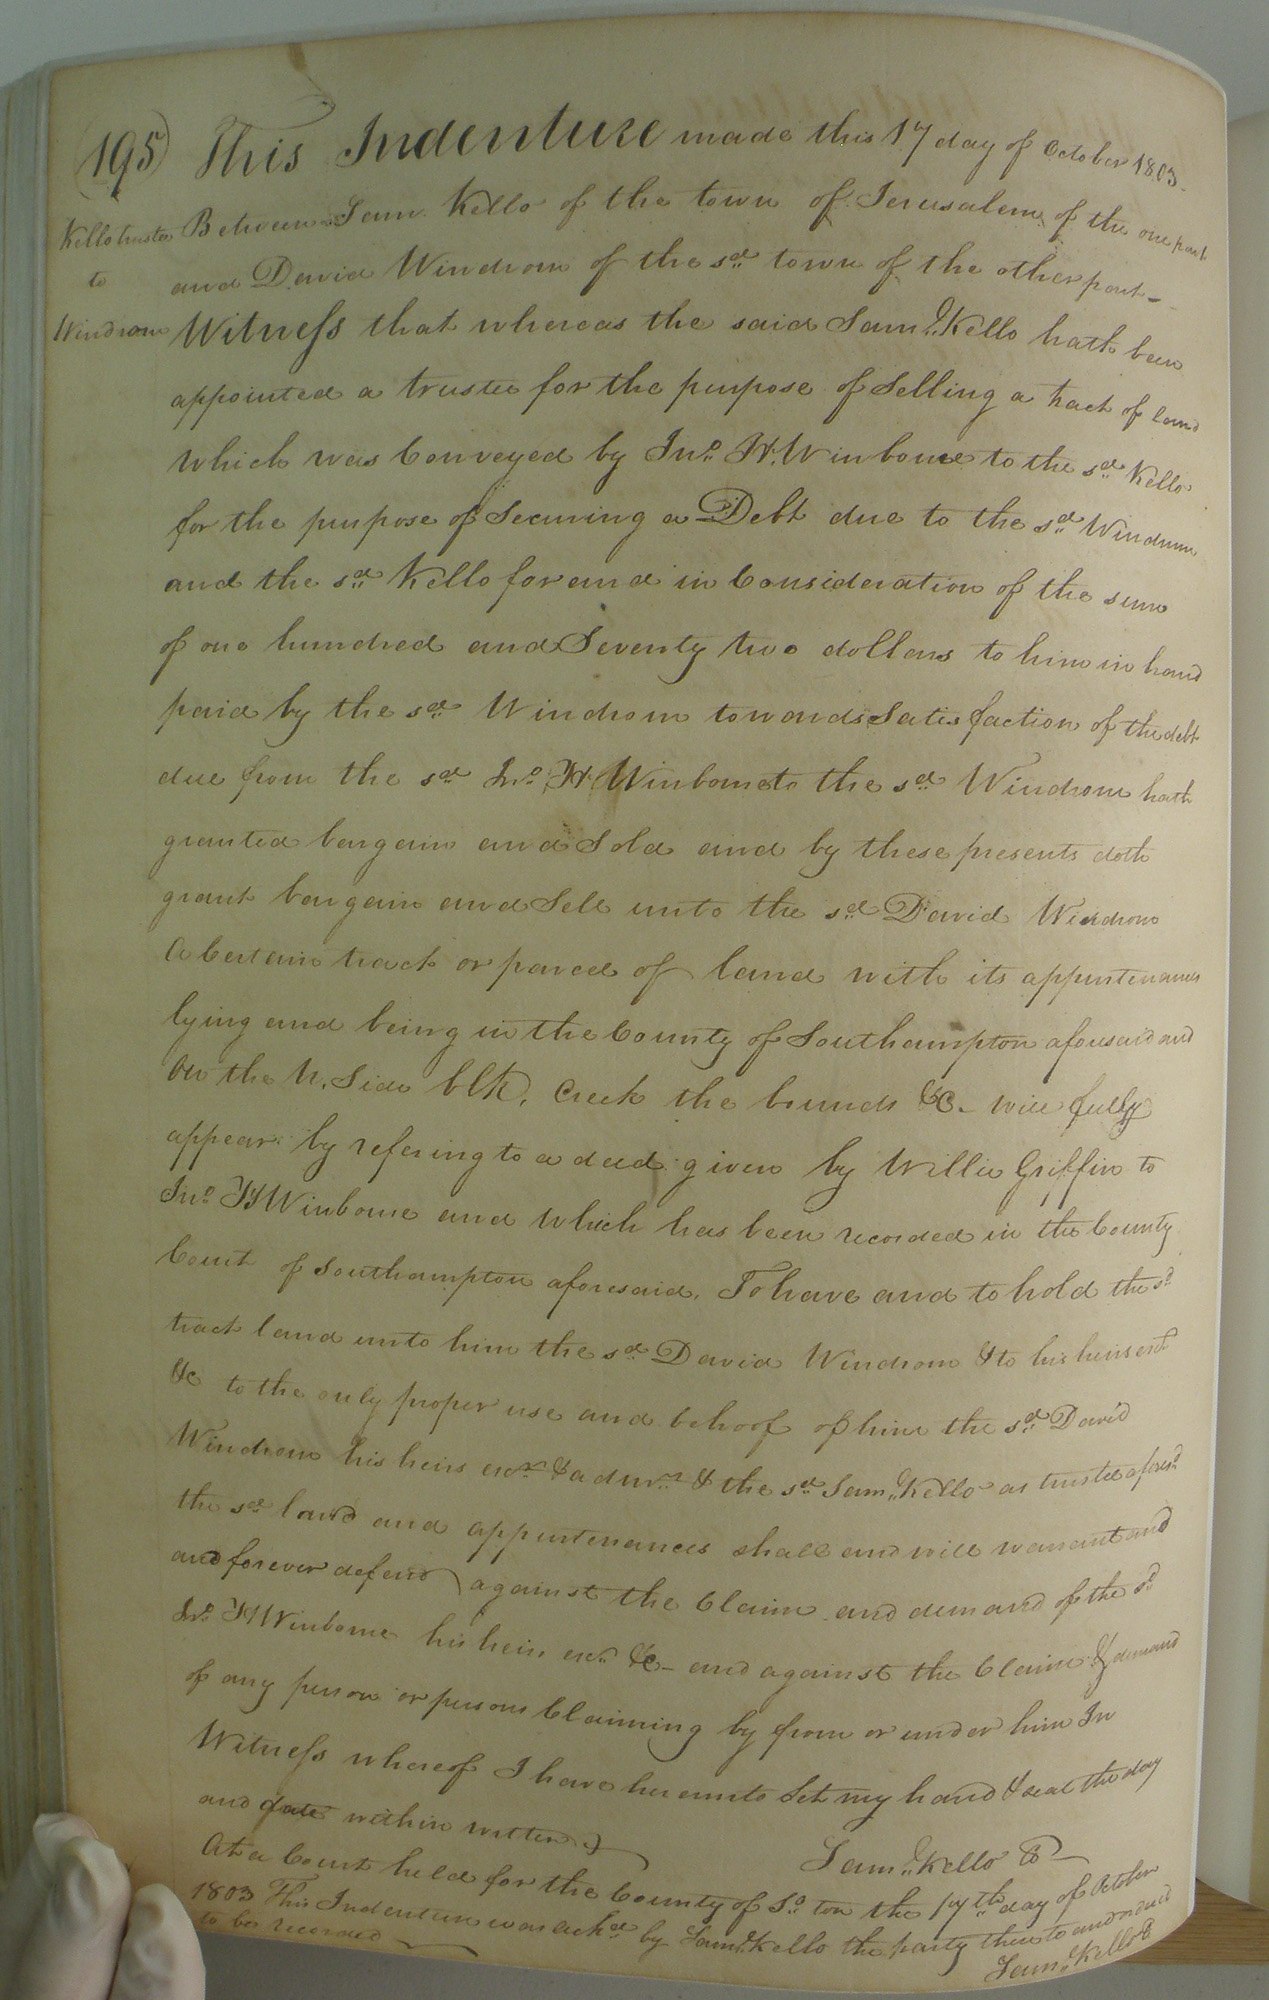 (195) This Indenture made this 17 day of October 1803.
Kello trustee
to
Windrom
Between Sam. Kello of the town of Jerusalem of the one part
and David Windrom of the sd. town of the other part
Witness that whereas the said Saml. Kello hath been
appointed a trustee for the purpose of Selling a tract of land
which was Conveyed by Jno. H. Winborne to the sd. Kello
for the purpose of Securing a Debt due to the sd. Windrum
and the sd. Kello for and in Consideration of the sum
of one hundred and Seventy two dollars to him in hand
paid by the sd. Windrom towards Satisfaction of the debt
due from the sd. Jno. H Winborne to the sd. Windrom hath
granted bargain and Sold and by these presents doth
grant bargain and Sell unto the sd. David Windrom
A Certain tract or parcel of land with its appurtenances
lying and being in the County of Southampton aforesaid and
On the N. Side blk. Creek the bounds &C. will fully
appear by refering to a deed given by Willie Griffin to
Jno. H Winborne and which has been recorded in the County
Court of Southampton aforesaid. To have and to hold the sd.
tract land unto him the sd. David Windrom & to his heirs exrs
&c to the only proper use and behoof of him the sd. David
Windrom his heirs exrs. & admrs. & the sd. Saml. Kello as trustee aforesd.
the sd. land and appurtenances shall and will warrant and
and forever defend against the Claim and demand of the sd.
Jno. H Winborne his heirs exrs. &C- and against the Claim & demand
of any person or persons Claiming by from or under him In
Witness whereof I have hereunto Set my hand & seal the day
and date within written
Saml. Kello
At a Court held for the County of So. ton the 17th. day of October
1803 This Indenture was ackd. by Saml. Kello the party thereto and ordered
to be recorded
Saml. Kello